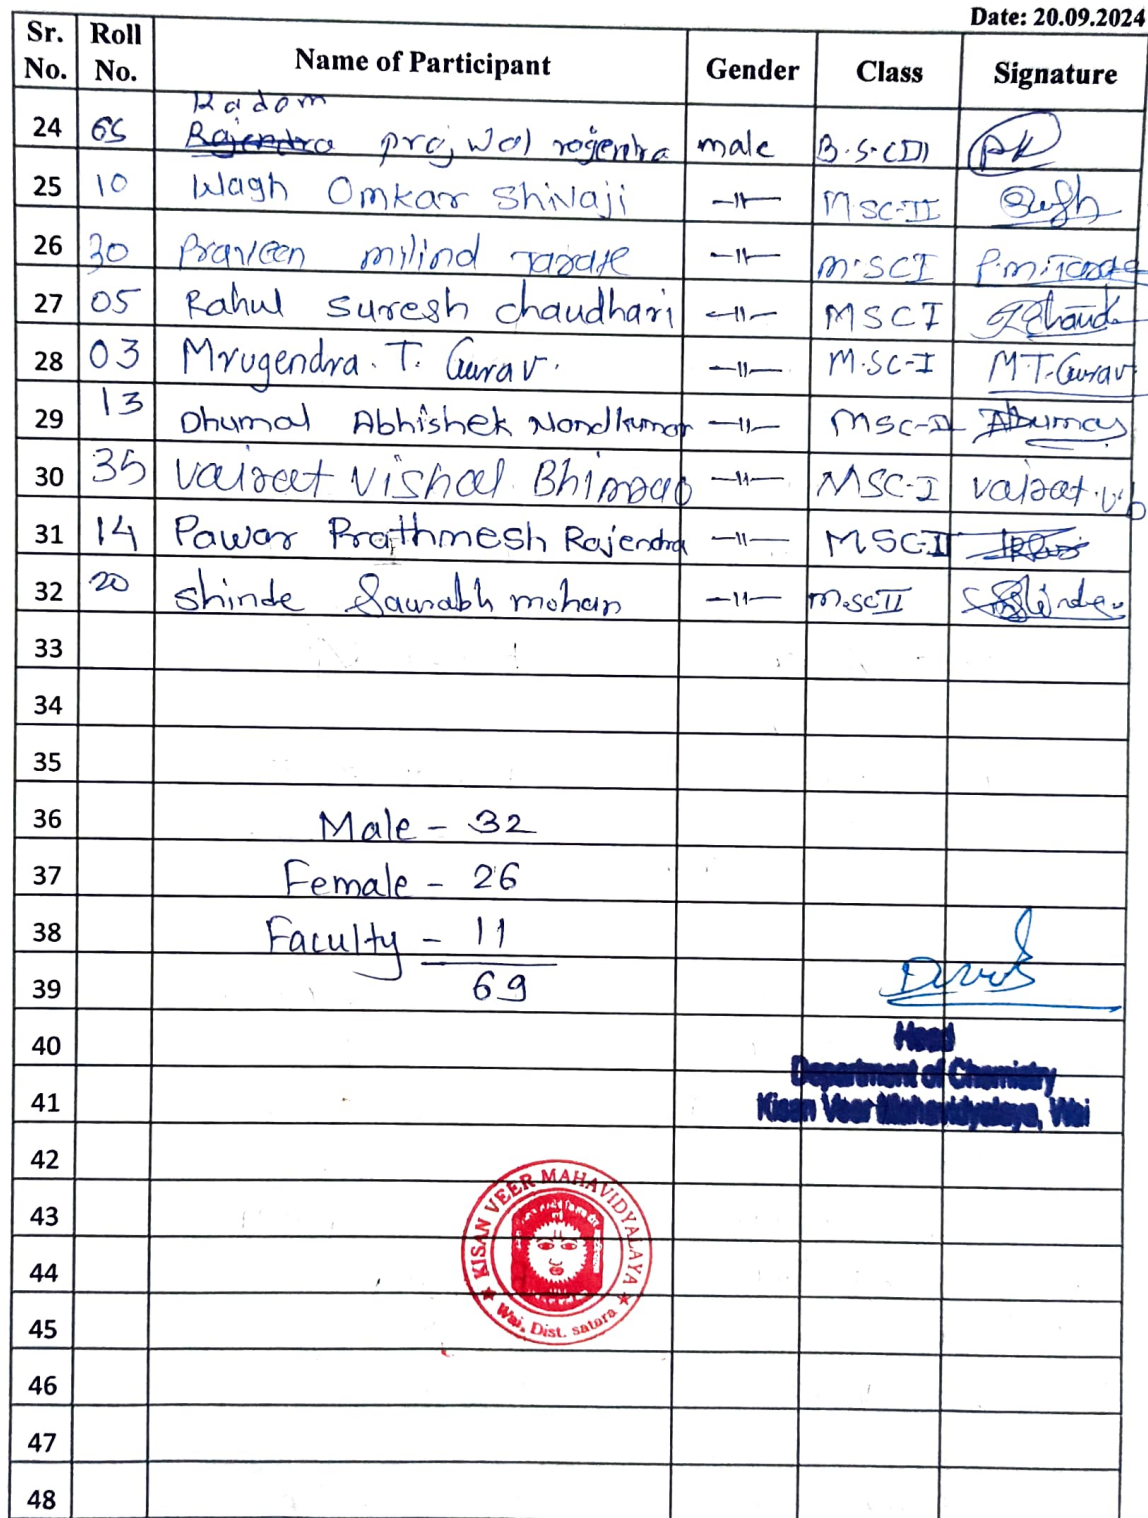 Date: 20.09.2024
Sr. No. Roll No. Name of Participant Gender Class Signature
Kadam
24 65 Rajendra prajwal rajendra male B.S.C(II)
25 10 Wagh Omkar Shivaji —11— MSC-II
26 30 Praveen milind Tarate —11— m.SCI P.m.Tarate
27 05 Rahul Suresh chaudhari —11— MSCI
28 03 Mrugendra. T. Gurav. —11— M.SC-I M.T.Gurav
29 13 Dhumal Abhishek Nandkumar —11— MSC-II
30 35 Vairat Vishal Bhimrao —11— MSC-I Vairat.v.b
31 14 Pawar Prathmesh Rajendra —11— MSC-II
32 20 Shinde Saurabh mohan —11— M.SCII
33
34
35
36 Male - 32
37 Female - 26
38 Faculty - 11
39 69
40 Head
Department of Chemistry
41 Kisan Veer Mahavidyalaya, Wai
42
43
KISAN VEER MAHAVIDYALAYA
44
Wai, Dist. satara
45
46
47
48